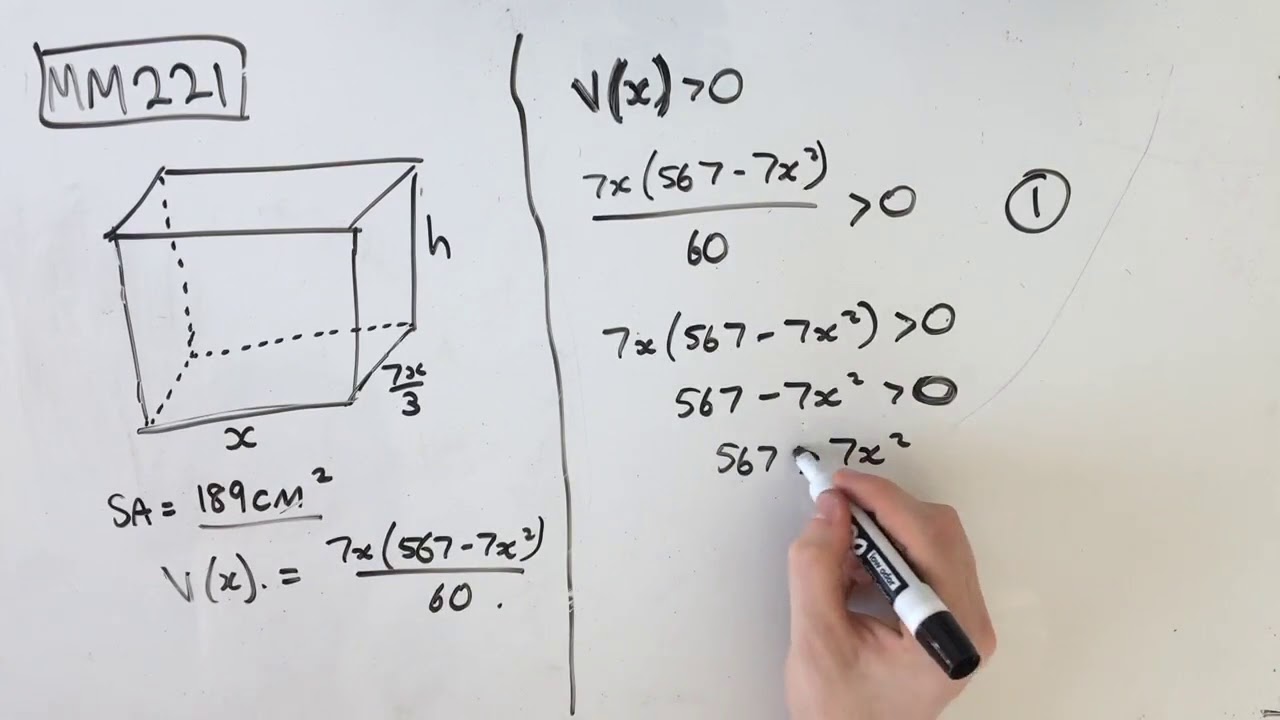 MM221
h
7x/3
x
SA = 189cm²
V(x). = 7x(567-7x²)/60 .
V(x)>0
7x(567-7x²)/60 >0 ①
7x(567-7x²)>0
567-7x²>0
567 7x²
low odor